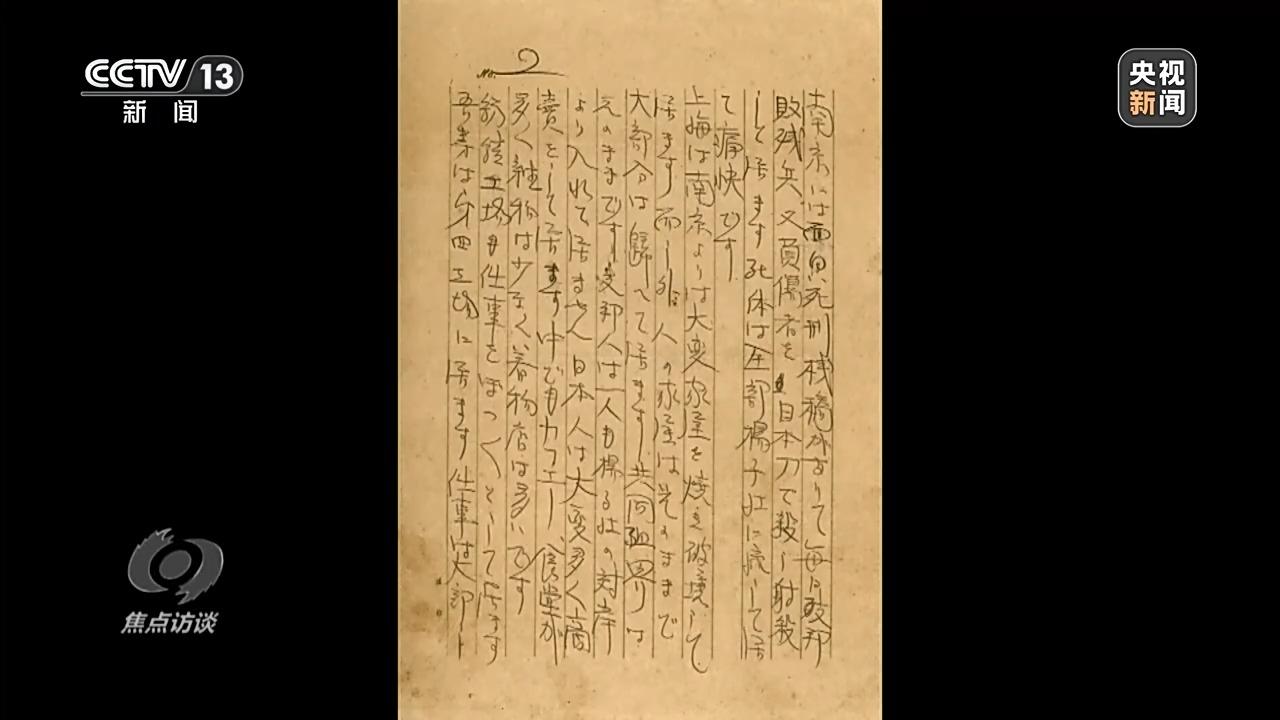 CCTV 13
新闻
央视
新闻
No. 2
南京には面白い死刑桟橋がありて毎日支那
敗残兵又負傷者を日本刀で殺し射殺
して居ます死体は全部揚子江に流して居
て痛快です
上海は南京よりは大変家屋を焼き破壊して
居ます而し外人の家屋はそのままで
大部分は歸へて居ます共同租界は
元のままです支那人は一人も揚子江の対岸
より入れて居ません日本人は大変多く商
賣をして居ます中でもカフエー、食堂が
多く雑物は少なく着物店は多いです
紡績工場も仕事をぼつ〱として居ます
吾等は第四工場に居ます仕事は大部
焦点访谈